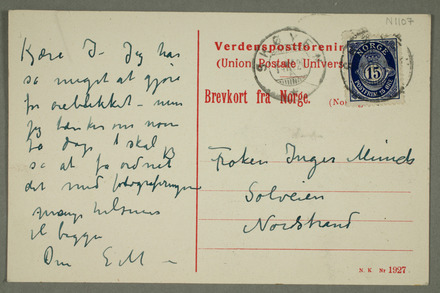 Kære I – Jeg har
så meget at gjøre
for øieblikket – men
jeg tænker om noen
to dage skal jeg
se at få ordnet
det med fotograferingen
mange hilsener
til begge
Din E.M –
N1107
Verdenspostforenin
(Union Postale Univers
Brevkort fra Norge.
(No
NORGE
15
POSTFRIM. 15 ØRE
Frøken Inger Munch
Solveien
Nordstrand
N. K. Nr 1927